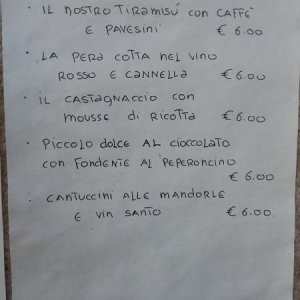 · IL NOSTRO TIRAMISÚ CON CAFFÈ
E PAVESINI € 6.00
· LA PERA COTTA NEL VINO
ROSSO E CANNELLA € 6.00
· IL CASTAGNACCIO CON
MOUSSE DI RICOTTA € 6.00
· PICCOLO DOLCE AL CIOCCOLATO
CON FONDENTE AL PEPERONCINO
€ 6.00
· CANTUCCINI ALLE MANDORLE
E VIN SANTO € 6.00